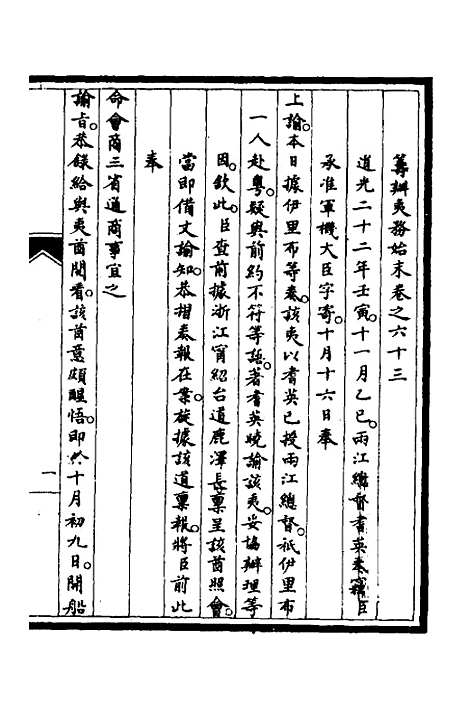 籌辦夷務始末卷之六十三
道光二十二年壬寅。十一月乙巳。兩江總督耆英奏。竊臣
承准軍機大臣字寄。十月十六日奉
上諭。本日據伊里布等奏。該夷以耆英已授兩江總督。祇伊里布
一人赴粵。疑與前約不符等語。著耆英曉諭該夷。妥協辦理等
因。欽此。臣查前據浙江甯紹台道鹿澤長稟呈該酋照會。
當即備文諭知。恭摺奏報在案。旋據該道稟報。將臣前此
奉
命會商三省通商事宜之
諭旨。恭錄給與夷酋閱看。該酋意頗醒悟。即於十月初九日。開船
一